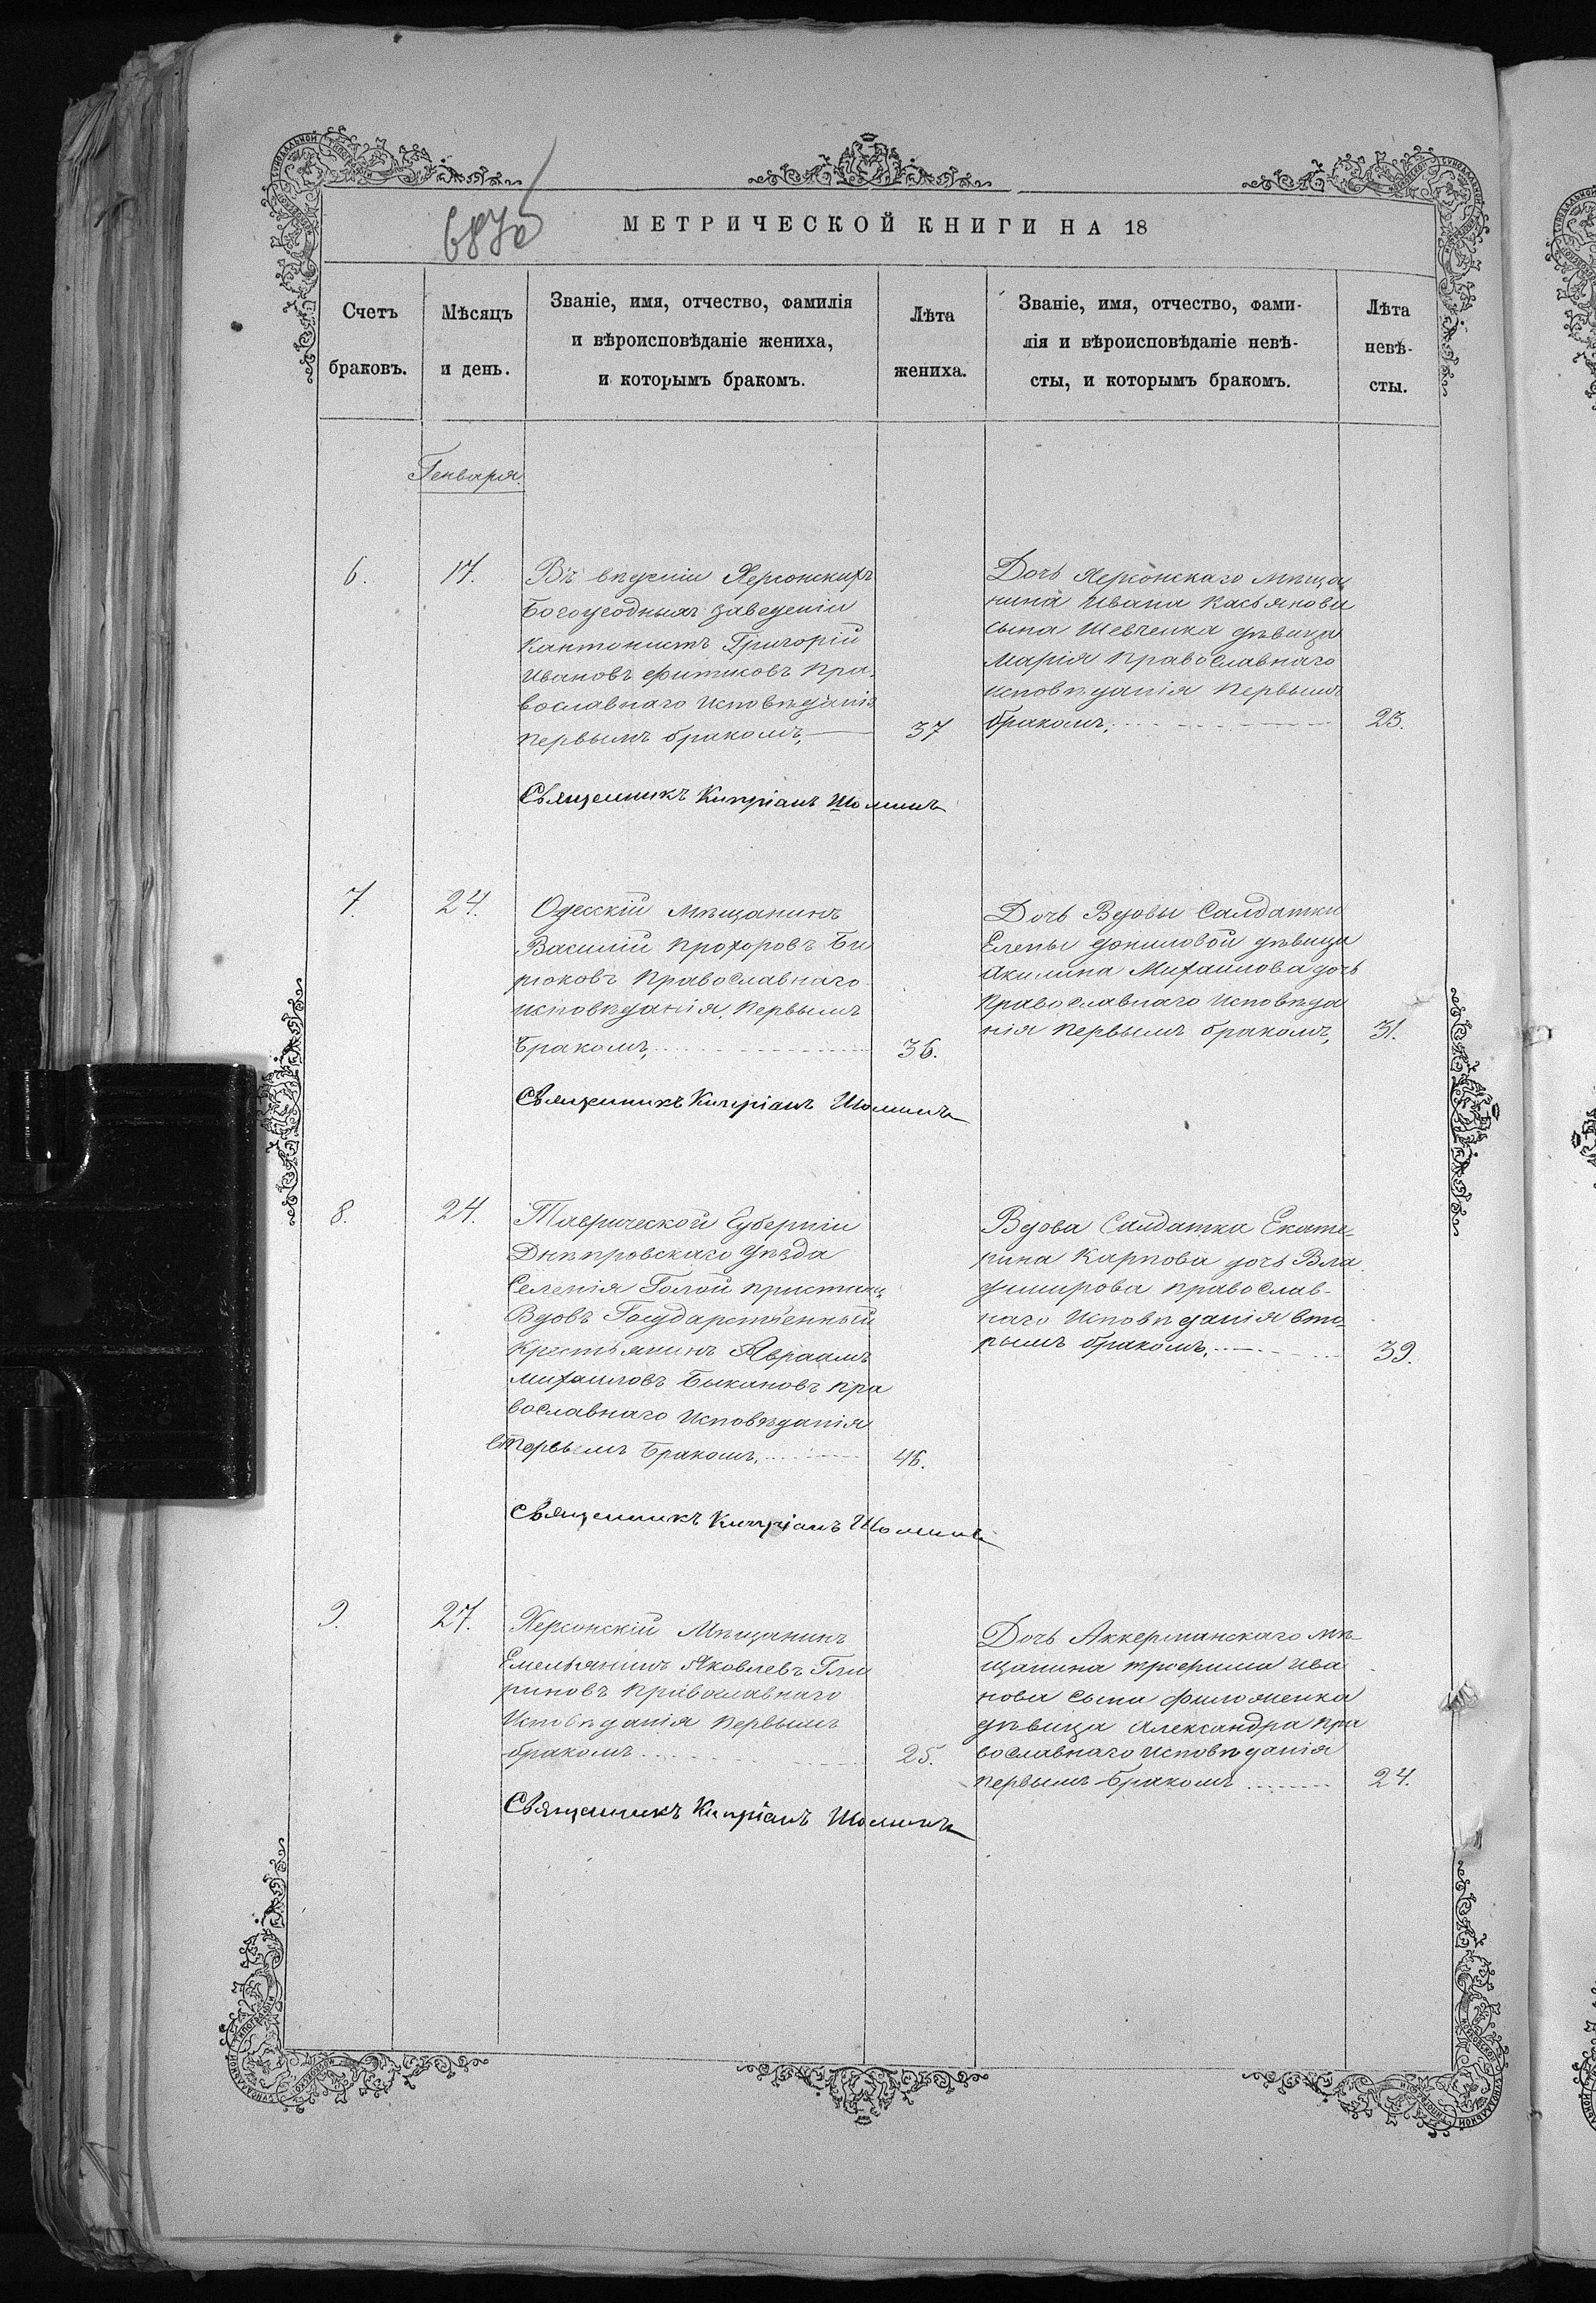 МЕТРИЧЕСКОЙ КНИГИ НА 18
Счетъ браковъ.
Мѣсяцъ и день.
Званіе, имя, отчество, фамилія
и вѣроисповѣданіе жениха,
и которымъ бракомъ.
Лѣта жениха.
Званіе, имя, отчество, фами-
лія и вѣроисповѣданіе невѣ-
сты, и которымъ бракомъ.
Лѣта невѣ-
сты.
Генваря.
6.
17.
Въ вѣденіи Херсонскихъ
Богоугодныхъ Заведеніи
Кантонистъ Григорій
Ивановъ Фитисовъ Пра-
вославнаго Исповѣданія
первымъ бракомъ,
37
Дочь Херсонскаго мѣща
нина Ивана Касьянова
сына Шевченка дѣвица
Марія Православнаго
исповѣданія Первымъ
бракомъ.
23.
Священникъ Кипріанъ
7.
24.
Одесскій мѣщанинъ
Василій Прохоровъ Би
рюковъ Православнаго
исповѣданія Первымъ
Бракомъ,
36.
Дочь Вдовы Салдатки
Елены Даниловой дѣвица
Акилина Михаилова дочь
Православнаго Исповѣда
нія Первымъ бракомъ,
31.
Священникъ Кипріанъ
8.
24.
Таврической Губерніи
Днѣпровскаго Уѣзда
Селенія Голой Пристани
Вдовъ Государственный
Крестьянинъ Авраамъ
Михаиловъ Быкановъ Пра
вославнаго Исповѣданія
Бракомъ.
46.
Вдова Салдатка Екате-
рина Карпова дочь Вла
димирова Православ-
наго Исповѣданія вто-
рымъ бракомъ.
39.
Священникъ Кипріанъ
9.
27.
Херсонскій Мѣщанинъ
Емельянинъ Яковлевъ
риновъ Православнаго
Исповѣданія Первымъ
бракомъ
25.
Дочь Аккерманскаго мѣ-
щанина Трофима Ива
нова сына Филоненка
дѣвица Александра Пра
вославнаго Исповѣданія
Первымъ Бракомъ
24.
Священникъ Кипріанъ